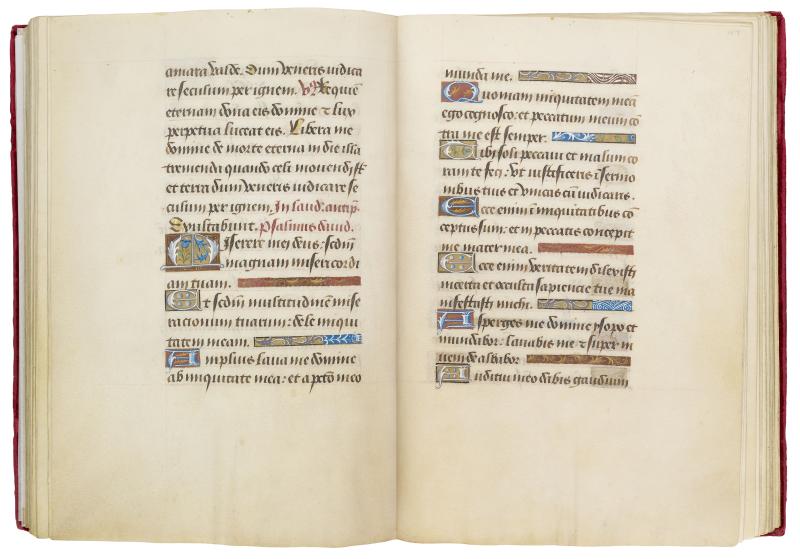 amara valde. Dum veneris iudica
re seculum per ignem. Vs. Requiem
eternam dona eis domine & lux
perpetua luceat eis. Libera me
domine de morte eterna in die illa
tremenda quando celi movendi st
et terra dum veneris iudicare se
culum per ignem. In laud. antiph.
Exultabunt. Psalmus david.
Miserere mei deus: sedm
magnam misericordi
am tuam.
Et sedm multitudinem mise
racionum tuarum: dele iniqui
tatem meam.
Amplius lava me domine
ab iniquitate mea: et a pcto meo
munda me.
Quoniam iniquitatem meā
ego cognosco: et peccatum meum cō
tra me est semper.
Tibi soli peccavi et malum co
ram te feci: ut iustificeris ī sermo
nibus tuis et vincas cū iudicaris.
Ecce enim ī iniquitatibus cō
ceptus sum: et in peccatis concepit
me mater mea.
Ecce enim veritatem dilexisti
incerta et occulta sapiencie tue ma
nifestasti michi.
Asperges me domine ysopo et
mundabor: lavabis me & super ni
vem dealbabor.
Auditui meo dabis gaudium